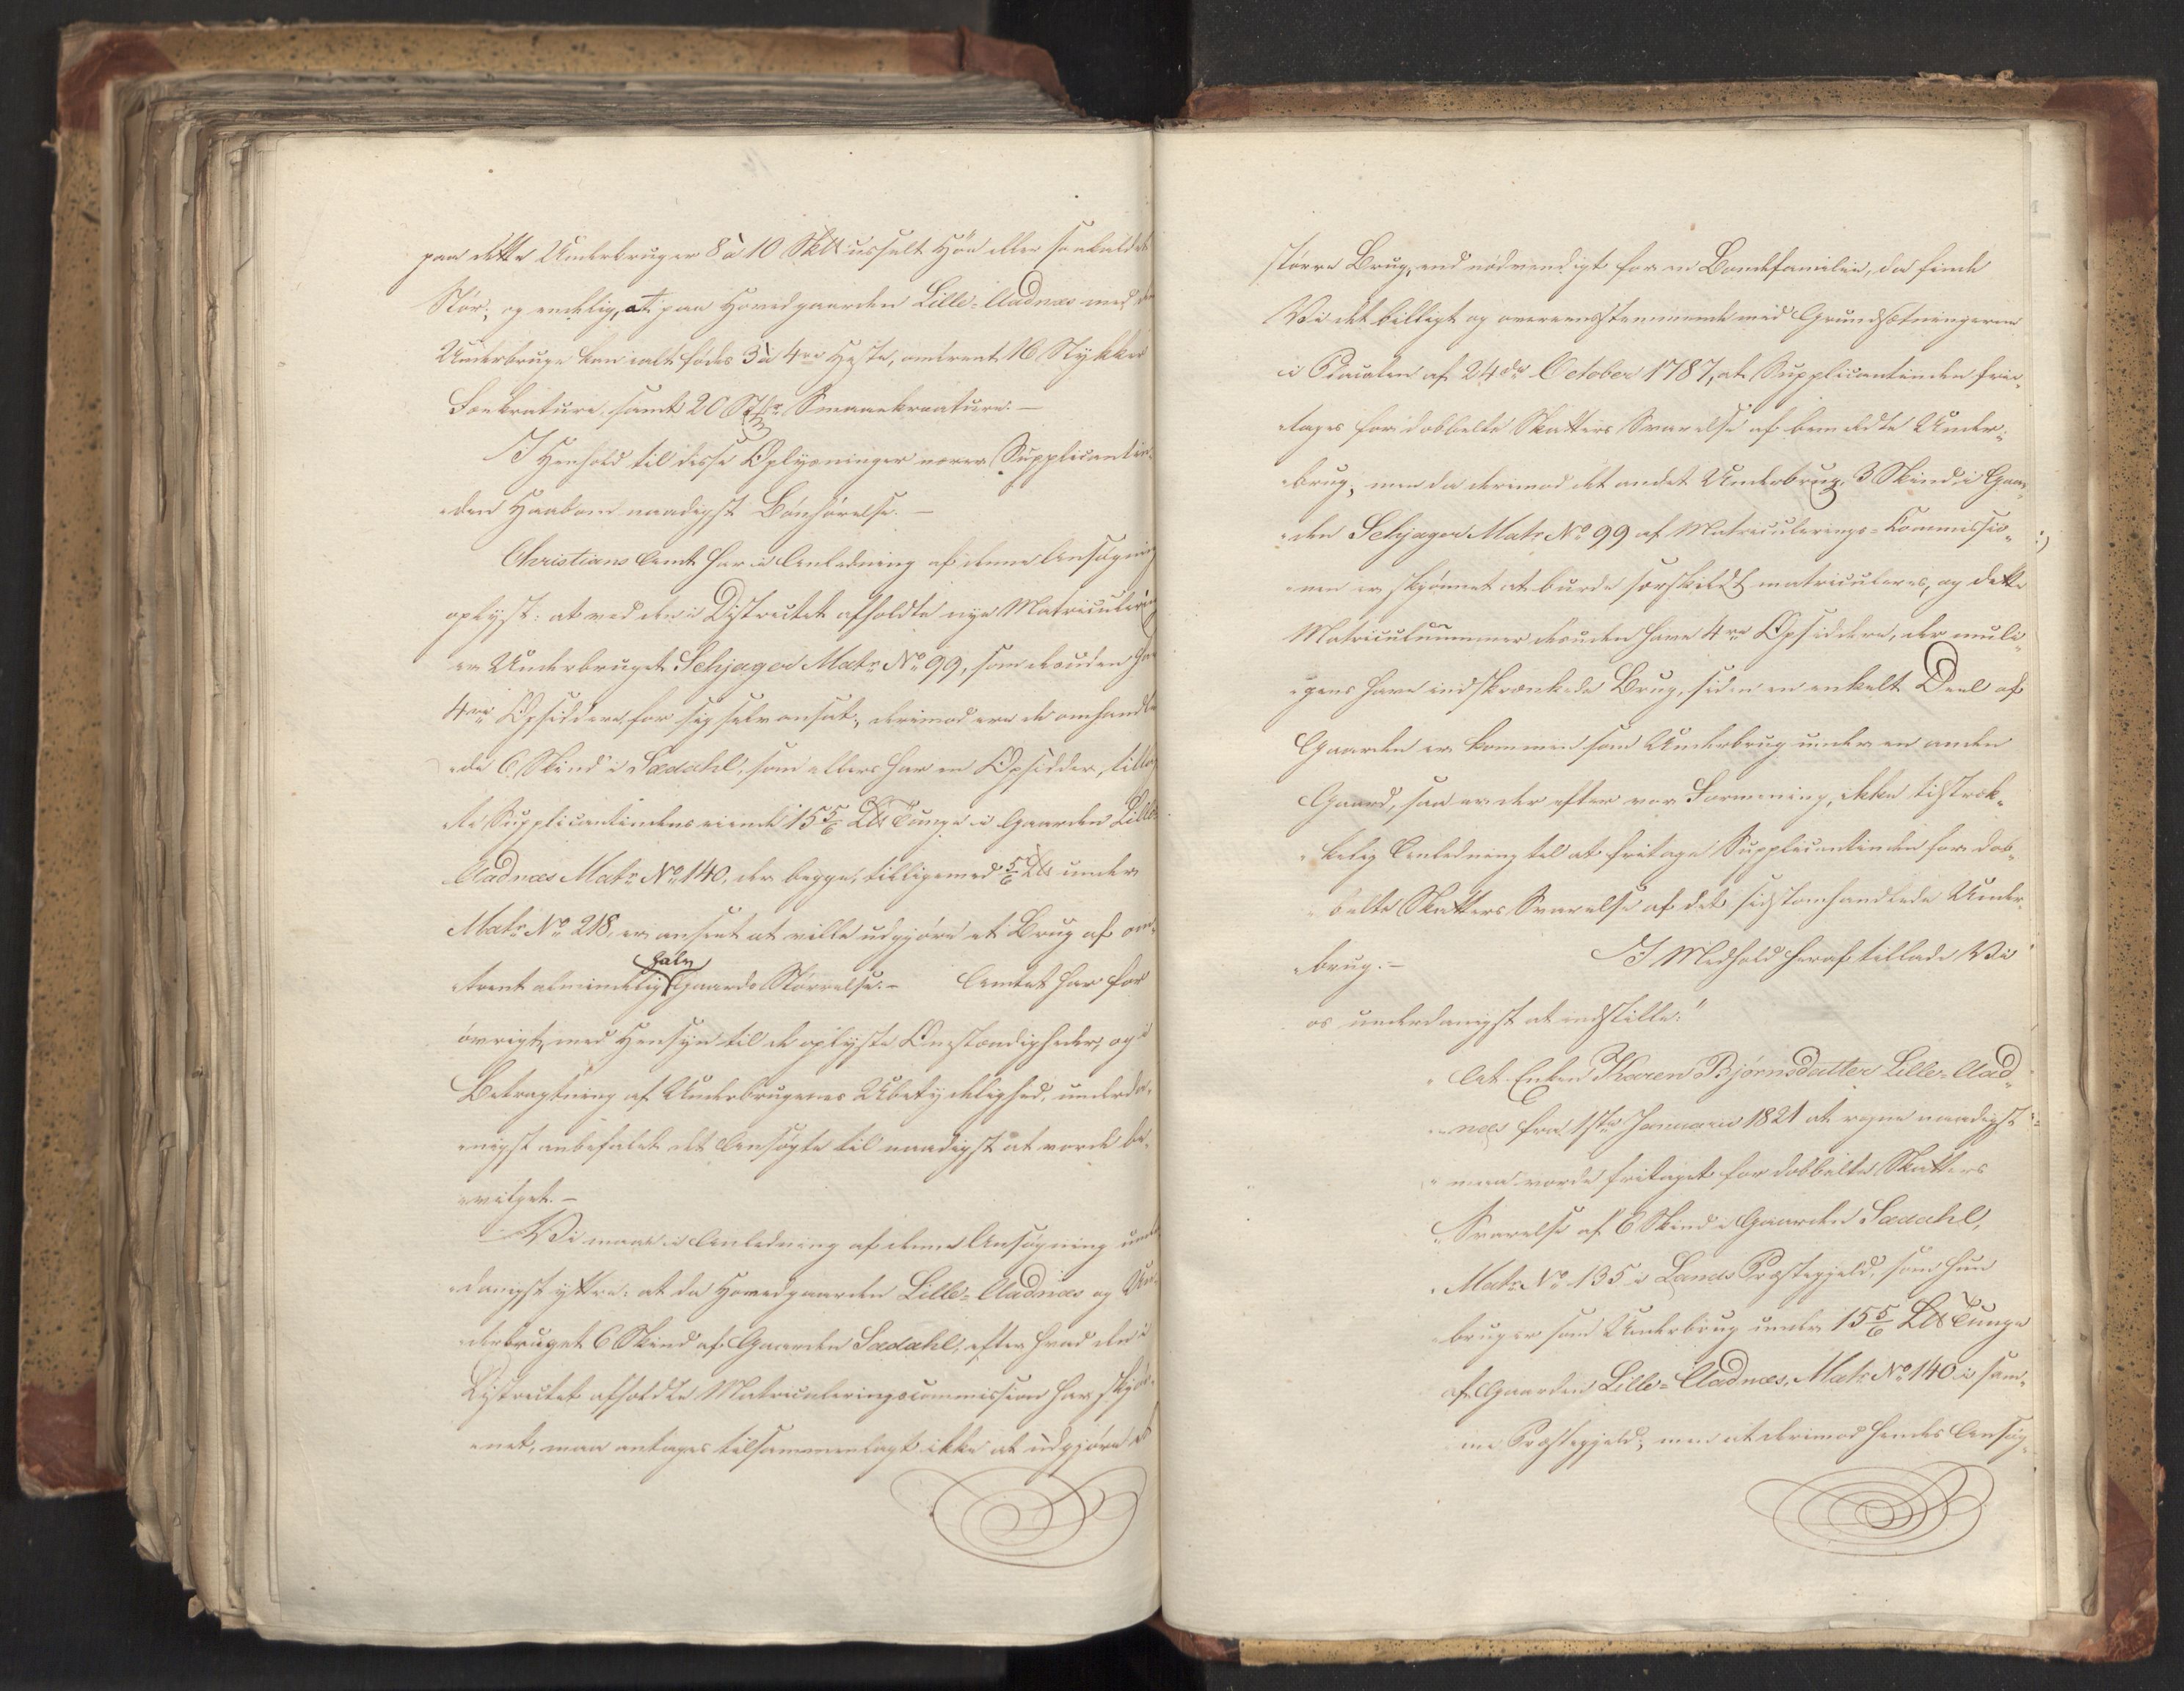 paa dette Underbrug er 8 à 10 Sk℔ usselt Høe eller saakaldet
Stør; og endelig, at paa Hovedgaarden Lille-Aadnæs med de
Underbruge kan i alt fødes 3 à 4re Heste, omtrent 16 Stykker
Føekreature, samt 20 Stkr Smaaekreature. —
I Henhold til disse Oplysninger nærer Supplicantin-
den Haab om naadigst Bønhørelse. —
Christians Amt har i Anledning af denne Ansøgning
oplyst: at ved den i Distrectet afholdte nye Matriculering
er Underbruget Sehjager Matr No 99, som desuden har
4re Opsiddere for sig selv ansat; derimod ere de omhandle-
de 6 Skind i Sædahl, som ellers har en Opsidder, tillagt
de Supplicantinden eiende 15 5/6 L℔ Tunge i Gaarden Lille-
Aadnæs Matr No 140, der begge, tilligemed 5/6 L℔ under
Matr No 218, er anseet at ville udgjøre et Brug af om-
trent almindelig halv Gaards Størrelse. — Amtet har for
øvrigt, med Hensyn til de oplyste Omstændigheder, og i
Betragtning af Underbrugenes Ubetydelighed, underda-
nigst anbefalet det Ansøgte til naadigst at vorde be-
vilget. —
Vi maae i Anledning af denne Ansøgning under-
danigst yttre: at da Hovedgaarden Lille-Aadnæs og Un-
derbruget 6 Skind af Gaarden Sædahl, efter hvad den i
Distrectet afholdte Matriculeringscommission har skjøn-
net, maa antages tilsammenlagt ikke at udgjøre et
større Brug, end nødvendigt for en Bondefamilie, da finde
Vi det billigt og overeensstemmende med Grundsætningerne
i Placaten af 24de October 1787, at Supplicantinden frie-
tages for dobbelte Skatters Svarelse af bemeldte Under-
brug; men da derimod det andet Underbrug, 3 Skind i Gaar-
den Sehjager Matr No 99 af Matriculerings-Commissio-
nen er skjønnet at burde særskildt matriculeres, og dette
Matriculnummer desuden have 4re Opsiddere, der muli-
gens have indskrænkede Brug, siden en enkelt Deel af
Gaarden er kommen som Underbrug under en anden
Gaard, saa er der efter vor Formening, ikke tilstræk-
kelig Anledning til at fritage Supplicantinden for dob-
belte Skatters Svarelse af det sidstomhandlede Under-
brug. — I Medhold heraf tillade Vi
os underdanigst at indstille:
"At Enken Karen Bjørnsdatter Lille-Aad-
næs fra 1ste Januarii 1821 at regne naadigst
maa vorde fritaget for dobbelte Skatters
Svarelse af 6 Skind i Gaarden Sædahl,
Matr No 135 i Lands Præstegjeld, som hun
bruger som Underbrug under 15 5/6 L℔ Tunge
af Gaarden Lille-Aadnæs, Matr No 140 i sam-
me Præstegjeld; men at derimod hendes Ansøg-